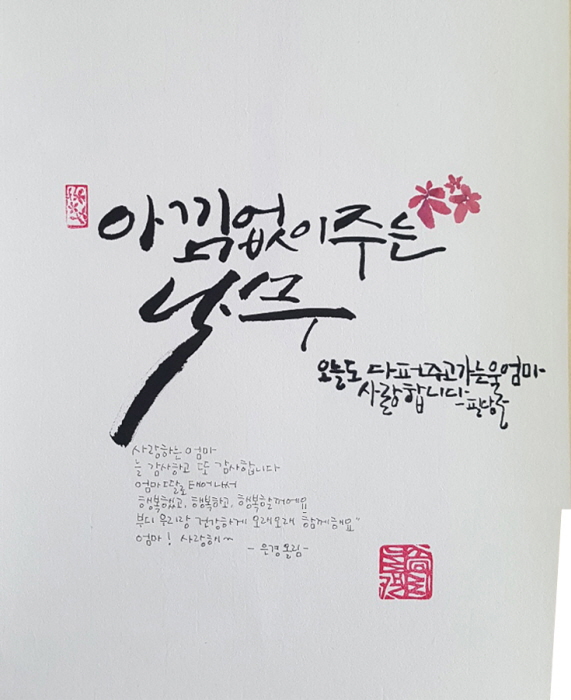 아낌없이주는
오늘도 다퍼주고가는울엄마
사랑합니다
사랑하는 엄마
늘 감사하고 또 감사합니다
엄마 딸로 태어나서
행복했고, 행복하고, 행복할꺼에요
부디 우리랑 건강하게 오래오래 함께해요"
엄마! 사랑해~
-은경올림-